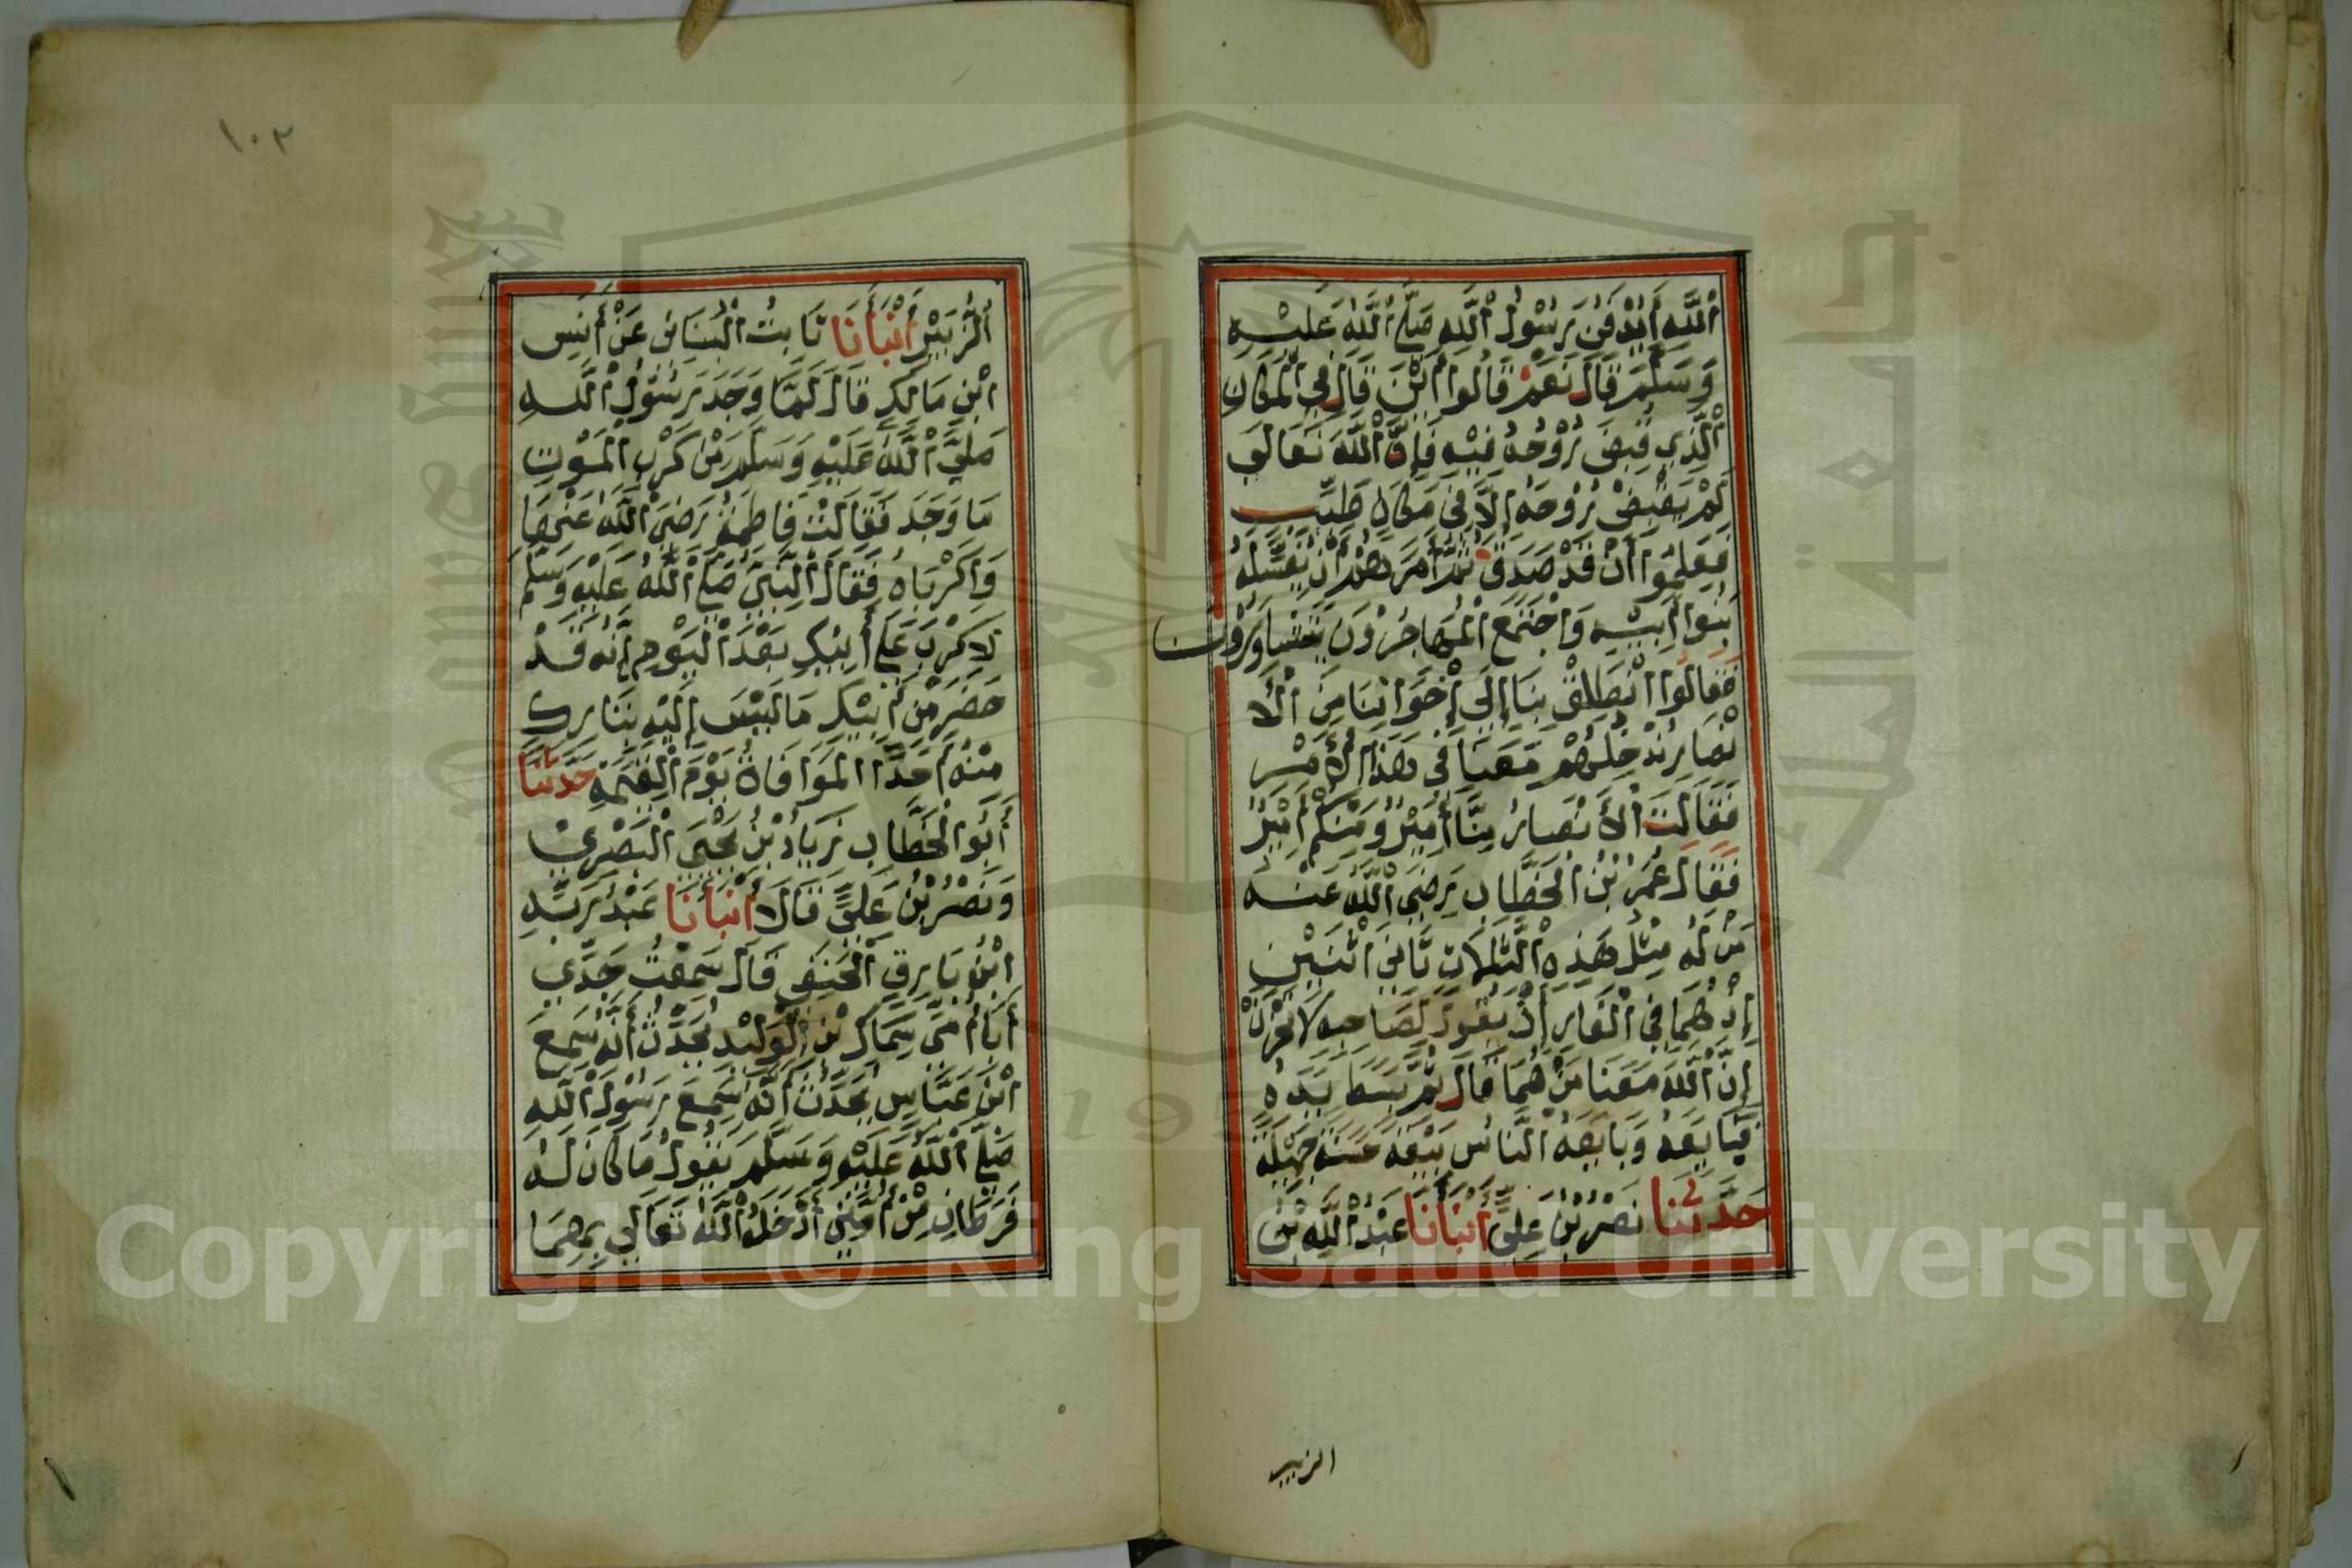 اللَّهِ أَيُدْفَنُ رَسُولُ اللَّهِ صَلَّى اللَّهُ عَلَيْهِ
وَسَلَّمَ قَالَ نَعَمْ قَالُوا أَيْنَ قَالَ فِي الْمَكَانِ
الَّذِي قُبِضَ رُوْحُهُ فِيْهِ فَإِنَّ اللَّهَ تَعَالَى
لَمْ يَقْبِضْ رُوْحَهُ إِلَّا فِي مَكَانٍ طَيِّبٍ
فَعَلِمُوا أَنْ قَدْ صَدَقَ ثُمَّ أَمَرَهُمْ أَنْ يُغَسِّلَهُ
بَنُوا أَبِيْهِ وَاجْتَمَعَ الْمُهَاجِرُوْنَ يَتَشَاوَرُوْنَ
فَقَالُوا انْطَلِقْ بِنَا إِلَى إِخْوَانِنَا مِنَ الْأَ
نْصَارِ نُدْخِلُهُمْ مَعَنَا فِي هَذَا الْأَمْرِ
فَقَالَتِ الْأَنْصَارُ مِنَّا أَمِيْرٌ وَمِنْكُمْ أَمِيْرٌ
فَقَالَ عُمَرُ بْنُ الْخَطَّابِ رَضِيَ اللَّهُ عَنْهُ
مَنْ لَهُ مِثْلُ هَذِهِ الثَّلَاثِ ثَانِيَ اثْنَيْنِ
إِذْ هُمَا فِي الْغَارِ إِذْ يَقُولُ لِصَاحِبِهِ لَا تَحْزَنْ
إِنَّ اللَّهَ مَعَنَا مَنْ هُمَا قَالَ ثُمَّ بَسَطَ يَدَهُ
فَبَايَعَهُ وَبَايَعَهُ النَّاسُ بَيْعَةً حَسَنَةً جَمِيْلَةً
حَدَّثَنَا نَصْرُ بْنُ عَلِيٍّ أَنْبَأَنَا عَبْدُ اللَّهِ بْنُ
الزبير
١٠٣
الزُّبَيْرِ أَنْبَأَنَا ثَابِتُ الْبُنَانِيُّ عَنْ أَنَسِ
ابْنِ مَالِكٍ قَالَ لَمَّا وَجَدَ رَسُوْلُ اللَّهِ
صَلَّى اللَّهُ عَلَيْهِ وَسَلَّمَ مِنْ كَرْبِ الْمَوْتِ
مَا وَجَدَ فَقَالَتْ فَاطِمَةُ رَضِيَ اللَّهُ عَنْهَا
وَاكَرْبَاهُ فَقَالَ النَّبِيُّ صَلَّى اللَّهُ عَلَيْهِ وَسَلَّمَ
لَا كَرْبَ عَلَى أَبِيْكِ بَعْدَ الْيَوْمِ إِنَّهُ قَدْ
حَضَرَ مِنْ أَبِيْكِ مَا لَيْسَ إِلَيْهِ بِتَارِكٍ
مِنْهُ أَحَدًا الْمَوَافَاةُ يَوْمَ الْقِيَمَةِ حَدَّثَنَا
أَبُو الْخَطَّابِ زِيَادُ بْنُ يَحْيَى الْبَصْرِيُّ
وَنَصْرُ بْنُ عَلِيٍّ قَالَا أَنْبَأَنَا عَبْدُ رَبِّهِ
ابْنُ بَارِقٍ الْحَنَفِي قَالَ سَمِعْتُ جَدِّي
أَبَا أُمِّي سِمَاكَ بْنَ الْوَلِيْدِ يُحَدِّثُ أَنَّهُ سَمِعَ
ابْنَ عَبَّاسٍ يُحَدِّثُ أَنَّهُ سَمِعَ رَسُوْلَ اللَّهِ
صَلَّى اللَّهُ عَلَيْهِ وَسَلَّمَ يَقُوْلُ مَا كَانَ لَهُ
فَرَطَانِ مِنْ أُمَّتِي أَدْخَلَهُ اللَّهُ تَعَالَى بِهِمَا
جامعة الملك سعود
1957
Copyright © King Saud University